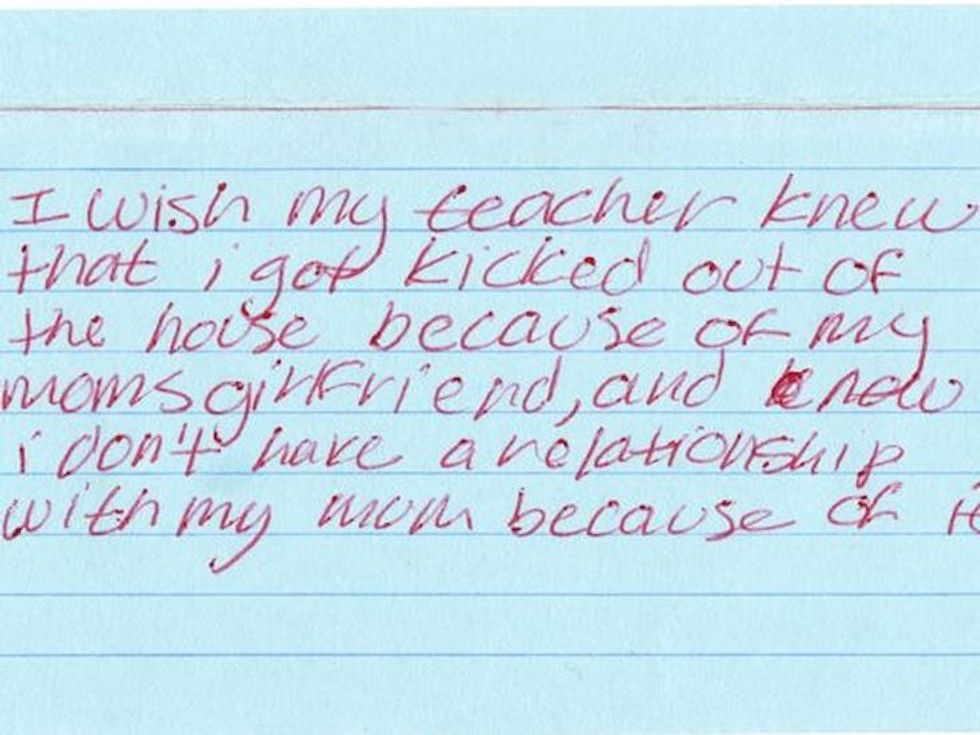 I wish my teacher knew
that i got kicked out of
the house because of my
moms girlfriend, and know
i don't have a relationship
with my mom because of it